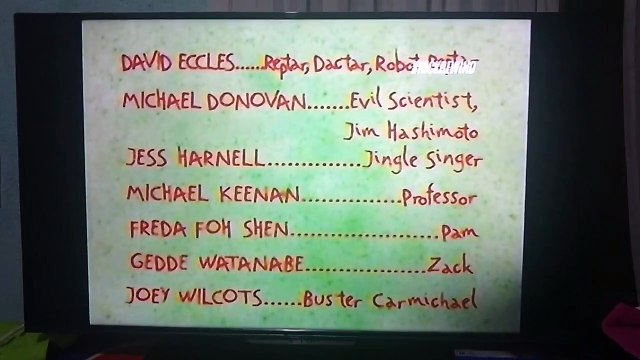 DAVID ECCLES.....Reptar, Dactar, Robot
MICHAEL DONOVAN.......Evil Scientist,
Jim Hashimoto
JESS HARNELL..............Jingle Singer
MICHAEL KEENAN...............Professor
FREDA FOH SHEN.......................Pam
GEDDE WATANABE...................Zack
JOEY WILCOTS......Buster Carmichael